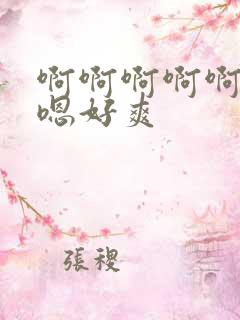 啊啊啊啊啊
嗯好爽
張稷